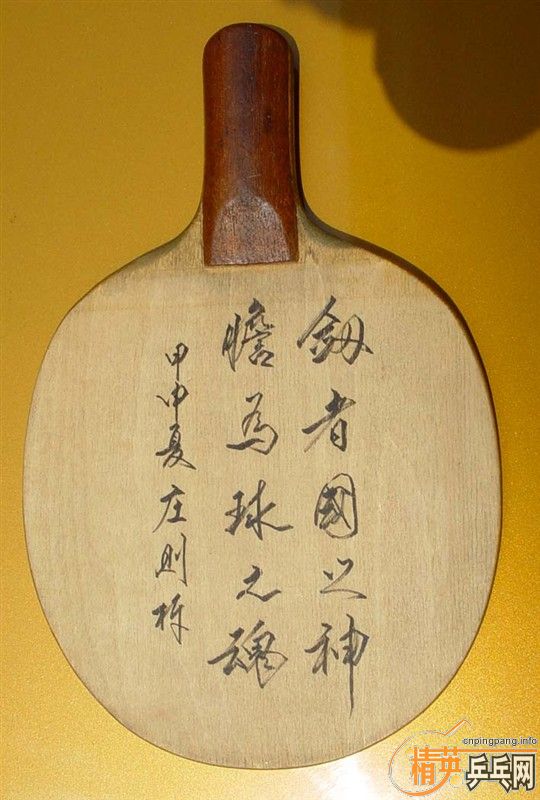 釼者國之神
膽為球之魂
甲申夏庄则栋
cnpingpang.info
精英乒乓网